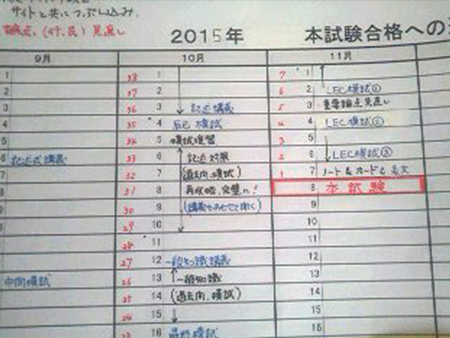 サイトと共につぶし込み
2015年
本試験合格への
9月
10月
11月
1
38
1
7
1
2
37
2
6
2
LEC模試①
3
36
3
記述講義
5
3
重要論点見直し
4
35
4
辰已模試
4
4
LEC模試②
5
34
5
模試復習
3
5
6
記述式講義
33
6
記述対策
2
6
LEC模試③
7
32
7
(過去問、模試)
1
7
ノート&カード&条文
8
31
8
再攻略、完璧に!
8
本試験
9
30
9
(講義もあわせて聞く)
9
10
29
10
10
11
28
11
11
12
27
12
一般知識講義
12
13
中間模試
26
13
一般知識
13
14
25
14
(過去問、模試)
14
15
15
15
16
23
16
最終模試
16